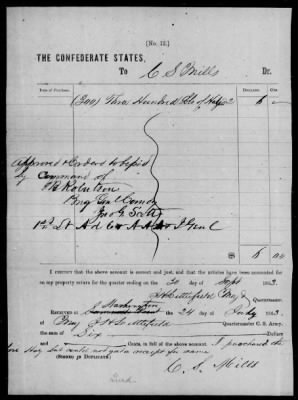 [No. 12.]
THE CONFEDERATE STATES,
To C S Mills Dr.
Date of Purchase. Dollars. Cts.
(300) Three Hundred lbs of Hay 2 6
Approved & ordered to be paid
by Command of
Robertson
Brig Genl Comdg
Jno G Scott
6 00
I CERTIFY that the above account is correct and just, and that the articles have been accounted for
on my property return for the quarter ending on the 30 day of Sept 1863.
Littlefield Quartermaster.
RECEIVED at the 24 day of July 1863.
of Littlefield Quartermaster C. S. Army,
the sum of Six Dollars
and Cents, in full of the above account. I purchased the
Hay but receipt for same
(SIGNED IN DUPLICATE.)
C. S. Mills